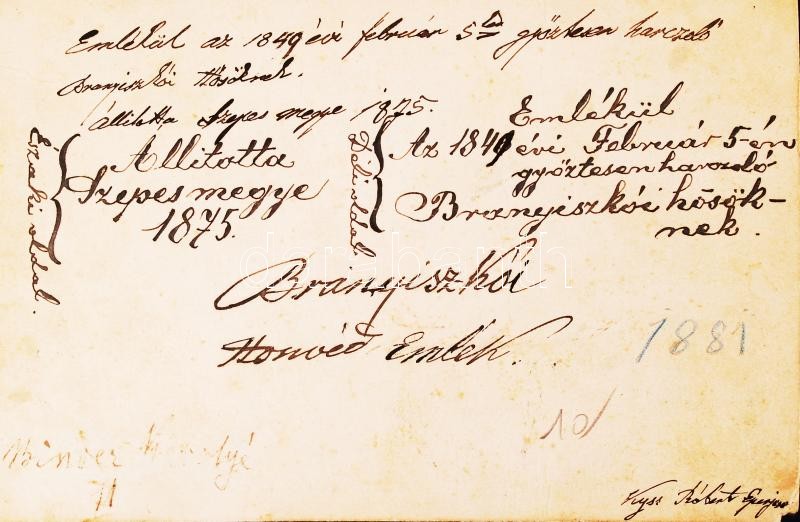 Emlékül az 1849 évi februar 5én győztesen harczoló
Branyiszkói Hősöknek.
állitotta Szepes megye 1875.
Északi oldal.
Allitotta
Szepesmegye
1875.
Déli oldal
Emlékül
Az 1849 évi Február 5-én
győztesen harczoló
Branyiszkói hősök-
nek.
Branyiszkói
Honvéd Emlék.
1881
10/
Binder
71
Kyss Róbert
darabanth